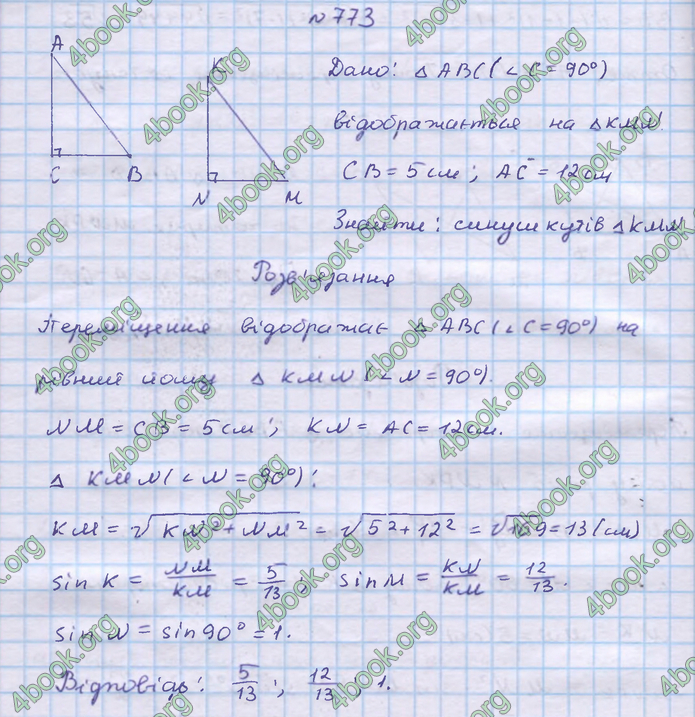 №773
A
C
B
K
N
M
Дано: △ ABC (∠C = 90°)
відображається на △KMN.
CB = 5 см; AC = 12 см
Знайти: синуси кутів △KMN
Розв'язання
Переміщення відображає △ABC (∠C = 90°) на
рівний йому △ KMN (∠N = 90°).
NM = CB = 5 см; KN = AC = 12 см.
△ KMN (∠N = 90°):
KM = √(KN² + NM²) = √(5² + 12²) = √169 = 13 (см)
sin K = NM/KM = 5/13; sin M = KN/KM = 12/13.
sin N = sin 90° = 1.
Відповідь: 5/13; 12/13; 1.
4book.org